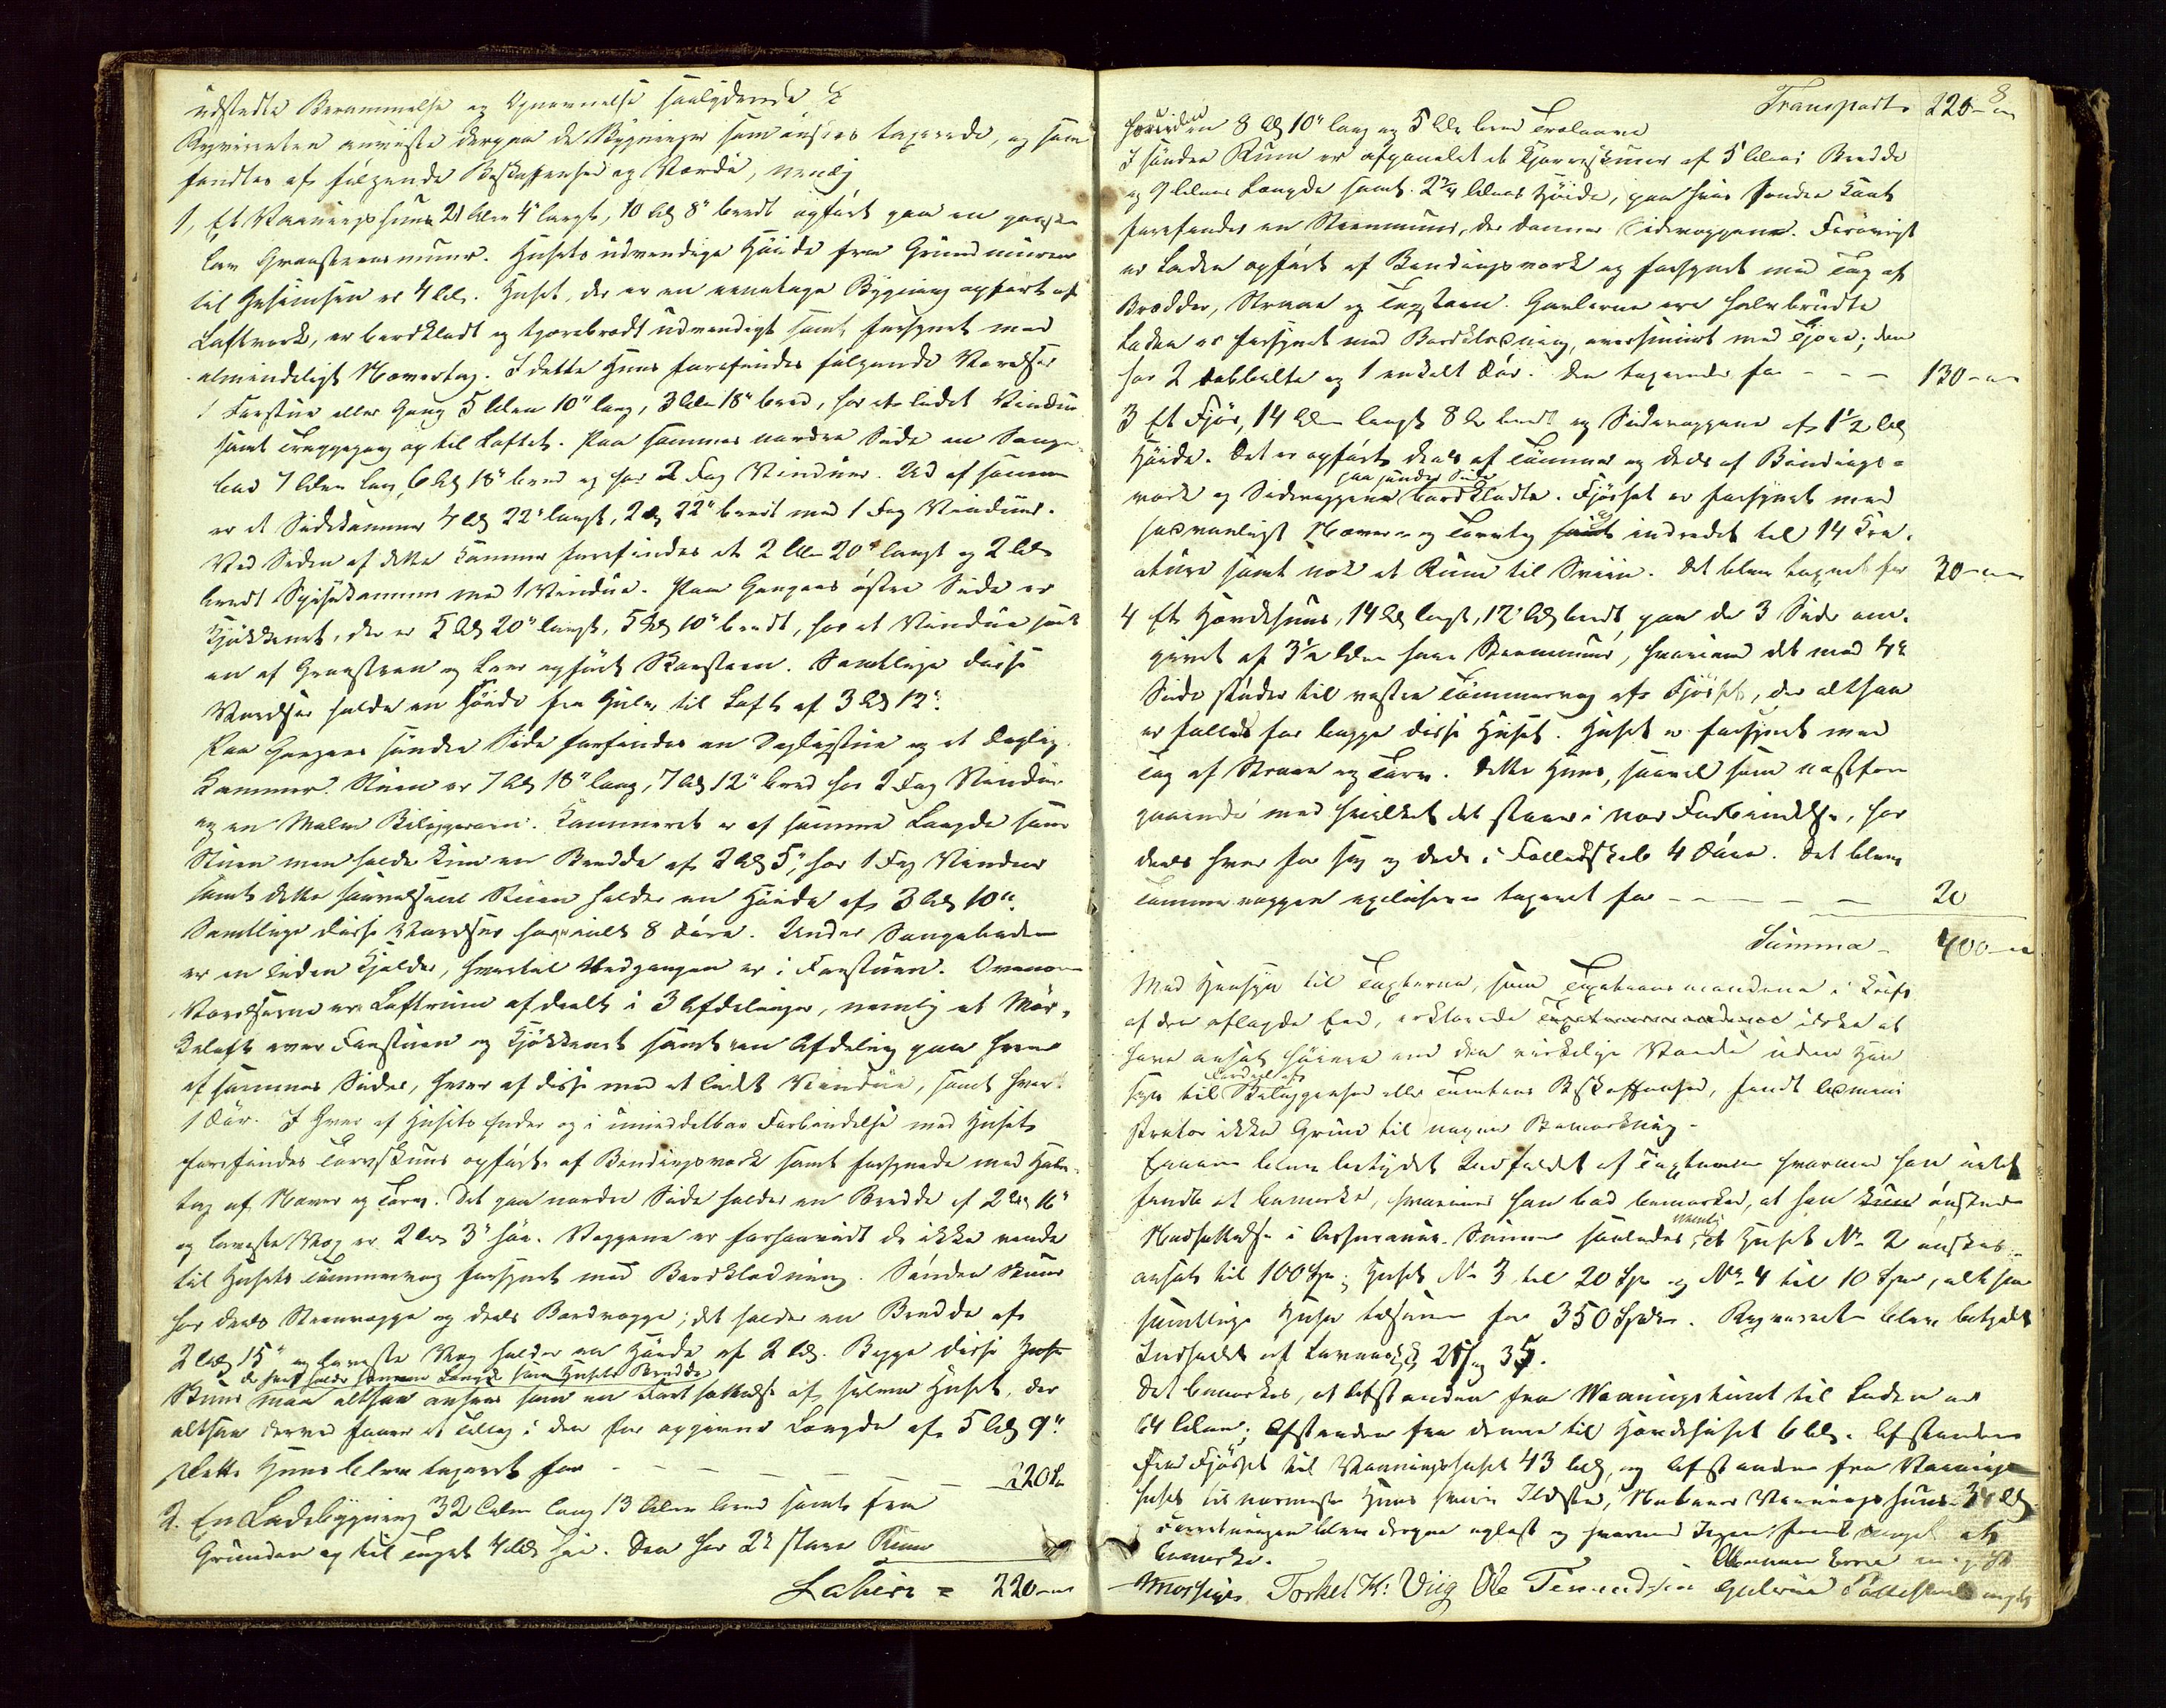 udstedte Berammelse og Opnævnelse saalydende
Reqvirenten anviste derpaa de Bygninger som ønskes taxerede, og som
fandtes af følgende Beskaffenhed og Værdie, nemlig
1, Et Vaaningshuus 21 Alen 4" langt, 10 Al 8" bredt opført paa en ganske
lav Graasteensmuur. Husets udvendige Høide fra Grundmuren
til Gesimsen er 4 Al. Huset, der er en eenetages Bygning opført af
Laftverk, er bordklædt og tjærebrædt udvendigt samt forsynet med
almindeligt Nævertag. I dette Huus forefindes følgende Værelser
1 Forstue eller Gang 5 Alen 10" lang, 3 Alen 18" bred, har et lidet Vindue
samt Trappegang op til Loftet. Paa sammes nordre Side en Senge-
bod 7 Alen lang, 6 Al 18" bred og har 2 Fag Vinduer. Ud af samme
er et Sidekammer 4 Al 22" langt, 2 Al 22" bredt med 1 Fag Vinduer.
Ved Siden af dette Kammer forefindes et 2 Alen 20" langt og 2 Alen
bredt Spisekammer med 1 Vindue. Paa Gangens østre Side er
Kjøkkenet, der er 5 Al 20" langt, 5 Al 10" bredt, har et Vindue samt
en af Graasteen og Leer opført Skorsteen. Samtlige disse
Værelser holde en Høide fra Gulv til Loft af 3 Al 12".
Paa Gangens søndre Side forefindes en Dagligstue og et Daglig-
kammer. Stuen er 7 Al 18" lang, 7 Al 12" bred har 2 Fag Vinduer
og en Malm Bilæggerovn. Kammeret er af samme Længde som
Stuen men holder kun en Bredde af 2 Al 5", har 1 Fag Vinduer
samt dette saavelsom Stuen holder en Høide af 3 Al 10".
Samtlige disse Værelser har ialt 8 Døre. Under Sengeboden
er en liden Kjelder, hvortil Nedgangen er i Forstuen. Ovenover
Værelserne er Loftrum afdeelt i 3 Afdelinger, nemlig et Mør-
keloft over Forstuen og Kjøkkenet samt en Afdeling paa hver
af sammes Sider, hver af disse med et lidet Vindue, samt hver
1 Dør. I hver af Husets Ender og i umiddelbar Forbindelse med Huset
forefindes Torvskuur opført af Bindingsverk samt forsynede med Halv-
tag af Næver og Torv. Det paa nordre Side holder en Bredde af 2 Al 16"
og laveste Væg er 2 Al 3" høi. Væggene er forsaavidt de ikke vende
til Husets Tømmervæg forsynet med Bordklædning. Søndre Skuur
har deels Steenvægge og deels Bordvægge; det holder en Bredde af
2 Al 15" og laveste Væg holder en Høide af 2 Al. Begge disse
der holde samme Længde som Husets Bredde
Skuur maa altsaa ansees som en Fortsættelse af selve Huset, der
altsaa derved faaer et Tillæg i den før opgivne Længde af 5 Al 9".
Dette Huus blev taxeret for - - - - - 220 Sp
2. En Ladebygning 32 Alen lang 13 Alen bred samt fra
Grunden og til Taget 4 Al høi. Den har 2 store Rum
Latus = 220 -
8
Transport 220 -
foruden en 8 Al 10" lang og 5 Alen bred Trelaave
I søndre Rum er afpanelet et Kjøreskuur af 5 Alens Bredde
og 9 Alens Længde samt 2 3/4 Alens Høide, paa hvis søndre Kant
forefindes en Steenmuur, der danner Sidevæggen. Forøvrigt
er Laden opført af Bindingsverk og forsynet med Tag af
Brædder, Straae og Tagsteen. Gavlerne ere halvbrudte
Laden er forsynet med Bordklædning, oversmurt med Tjære; den
har 2 dobbelte og 1 enkelt Dør. Den taxeredes for - - - 130 -
3 Et Fjøs, 14 Alen langt 8 Al bredt og Sidevæggene af 1 1/2 Al
Høide. Det er opført deels af Tømmer og deels af Bindings-
paa søndre Side
verk og Sidevæggene bordklædte. Fjøset er forsynet med
sædvanligt Næver- og Torvtag samt indredet til 14 Kre-
ature samt nok et Rum til Sviin. Det blev taxeret for 30 -
4 Et Hørdehuus, 14 Al langt, 12 Al bredt, paa de 3 Sider om-
givet af 3 1/2 Alen høie Steenmuur, hvorimod det med 4de
Side støder til vestre Tømmervæg af Fjøset, der altsaa
er fælles for begge disse Huse. Huset er forsynet med
Tag af Straae og Torv. Dette Huus, saavel som næstfore-
gaaende med hvilket det staaer i nær Forbindelse, har
deels hver for sig og deels i Fælledsskab 4 Døre. Det blev
Tømmervæggen exclusive taxeret for - - - - - 20
Summa - 400 -
Med Hensyn til Taxterne, som Taxtationsmændene i Kraft
af den aflagde Eed, erklærede ikke at
have ansat høiere end den virkelige Værdie uden Hen-
Fordeel af
syn til Beliggenhed eller Tomtens Beskaffenhed, fandt Admini-
strator ikke Grund til nogen Bemærkning -
Eieren blev betydet Indholdet af Taxterne hvormod han intet
fandt at bemærke, hvorimod han bad bemærket, at han kun ønskede
nemlig
Nedsættelse i Assurance-Summer saaledes at Huset No 2 ønskes
ansat til 100 Sp, Huset No 3 til 20 Sp og No 4 til 10 Sp, altsaa
samtlige Huse tilsammen for 350 Spdr. Reqvirenten blev betydet
Indholdet af Lovens §§ 25 og 35.
Det bemærkes, at Afstanden fra Vaaningshuset til Laden er
64 Alen; Afstanden fra denne til Hørdehuset 6 Al. Afstanden
fra Fjøset til Vaaningshuset 43 Al, og Afstanden fra Vaanings-
huset til nærmeste Huus hvori Ildsted, Naboens Vaaningshuus 34 Al
Forretningen blev derpaa oplæst og hvormod Ingen fandt noget at
bemærke.
Torkel K: Viig Ole